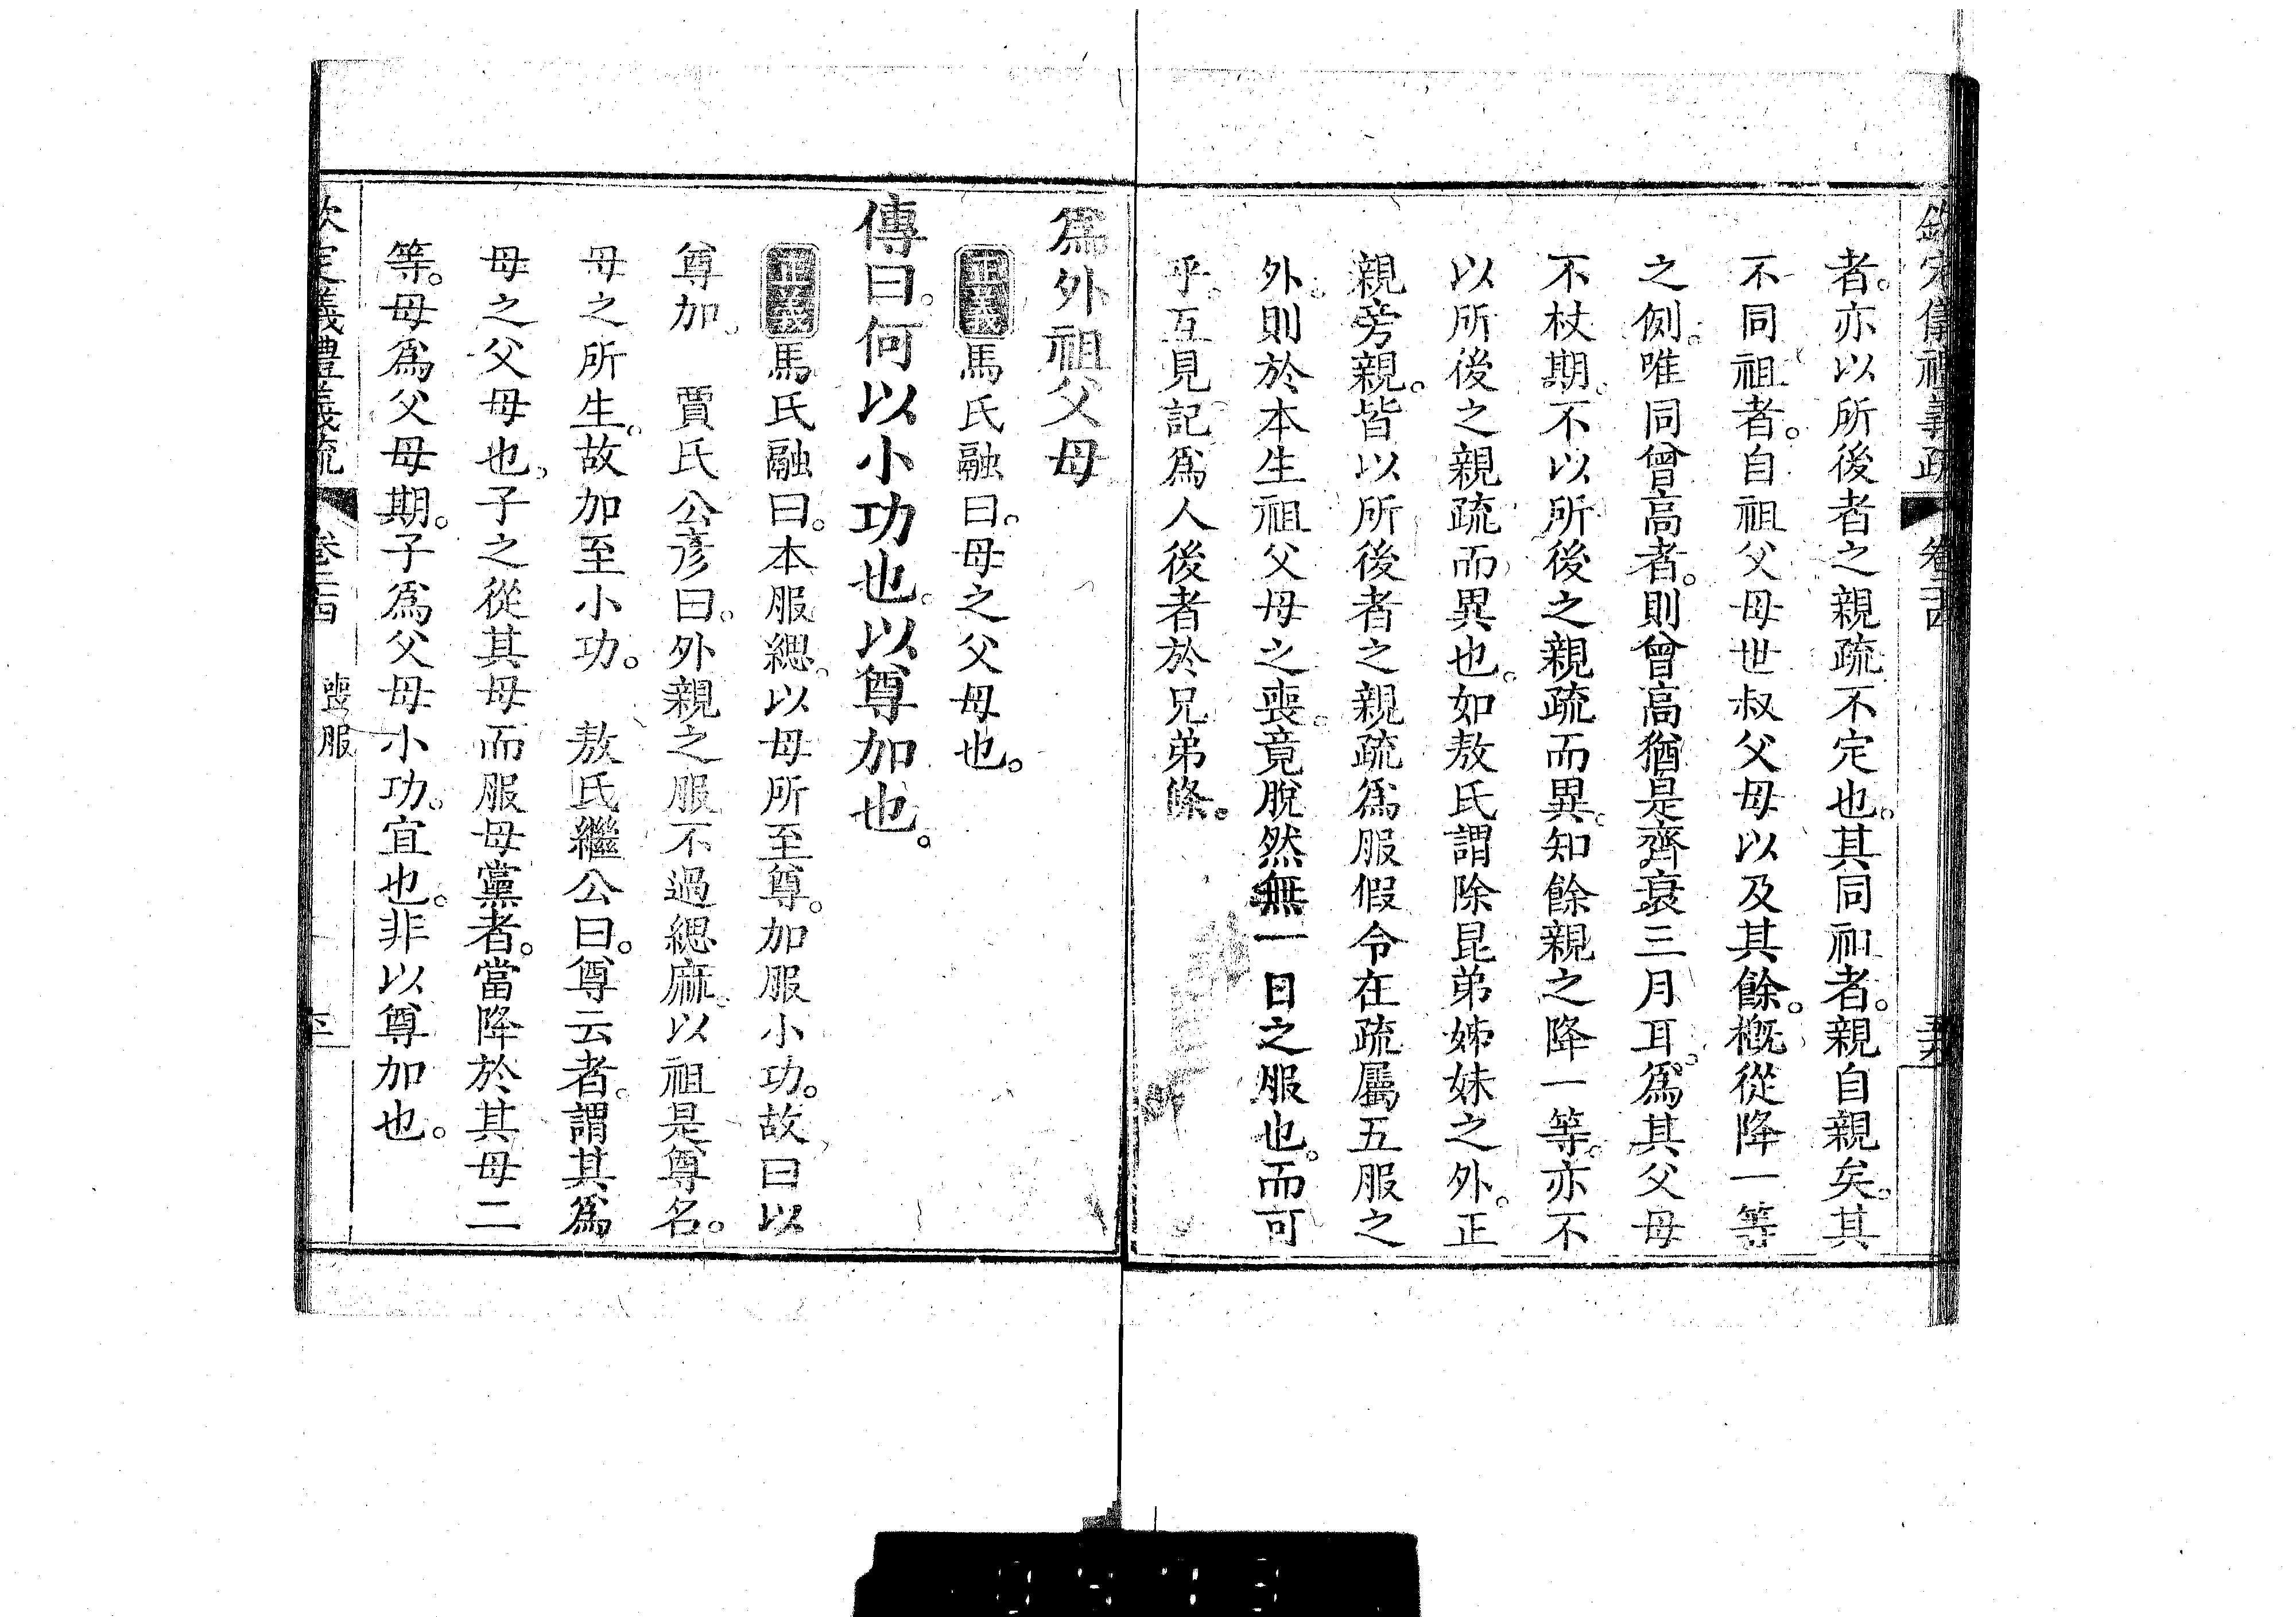 者。亦以所後者之親疏不定也。其同祖者。親自親矣。其
不同祖者。自祖父母世叔父母以及其餘。槪從降一等
之例。唯同曾高者。則曾高猶是齊衰三月耳。爲其父母
不杖期。不以所後之親疏而異。知餘親之降一等。亦不
以所後之親疏而異也。如敖氏謂除昆弟姊妹之外。正
親旁親。皆以所後者之親疏爲服假令在疏屬五服之
外。則於本生祖父母之喪。竟脫然無一日之服也。而可
乎。互見記爲人後者於兄弟條。
爲外祖父母
正義馬氏融曰。母之父母也。
傳曰。何以小功也。以尊加也。
正義馬氏融曰。本服緦。以母所至尊。加服小功。故曰以
尊加。 賈氏公彥曰。外親之服不過緦麻。以祖是尊名。
母之所生。故加至小功。 敖氏繼公曰。尊云者。謂其爲
母之父母也。子之從其母而服母黨者。當降於其母二
等。母爲父母期。子爲父母小功。宜也。非以尊加也。
欽定義禮義疏 卷二十四 喪服